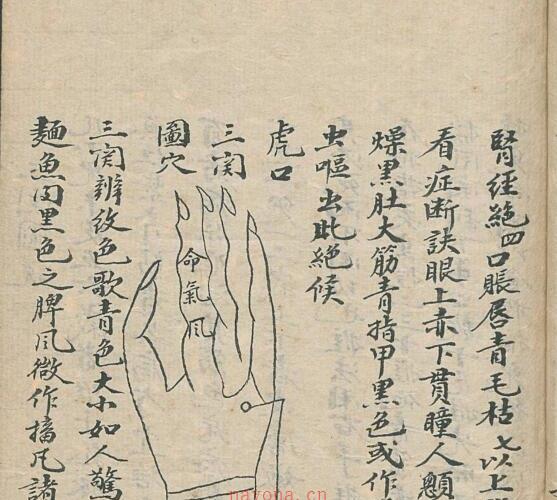 腎經絕四口脹唇青毛枯七以上
看症断訣眼上赤下貫瞳人顖
燥黑肚大筋青指甲黑色或作
虫嘔出此絕候
虎口
三関
圖穴
命氣風
三関辨紋色歌青色大小如人驚
麵魚內黑色之脾風微作搐凢諸
nayona.cn